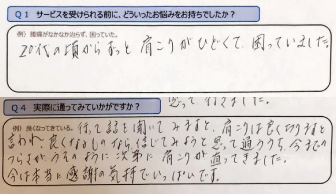 Q1 サービスを受けられる前に、どういったお悩みをお持ちでしたか？
例）腰痛がなかなか治らず、困っていた。
20代の頃からずっと肩こりがひどくて、困っていました。
Q4 実際に通ってみていかがですか？
思って行きました。
例）良くなってきている。待って話を聞いてみると、肩こりは良くなりますと
言われ、良くなるものなら、信じてみようと思って通ううち、今までの
つらさがうそのように次第に肩こりが通ってきました。
今は本当に感謝の気持でいっぱいです。